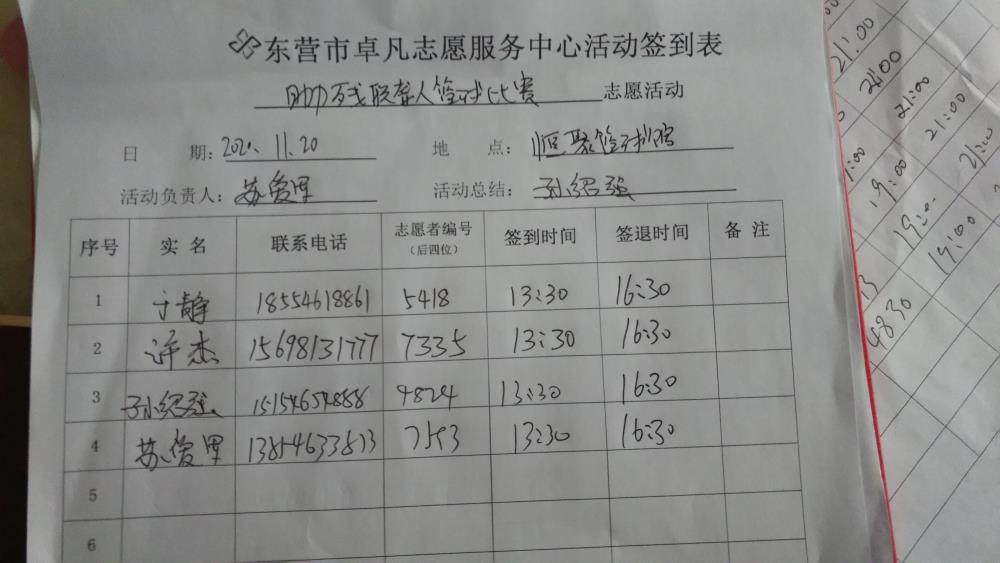 东营市卓凡志愿服务中心活动签到表
助残联聋人篮球比赛 志愿活动
日 期: 2020.11.20 地 点: 恒聚篮球馆
活动负责人: 苏俊军 活动总结: 孙绍强
序号 实名 联系电话 志愿者编号 (后四位) 签到时间 签退时间 备注
1 于静 18554618861 5418 13:30 16:30
2 许杰 15698131777 7335 13:30 16:30
3 孙绍强 15154654888 4824 13:30 16:30
4 苏俊军 13854633513 7593 13:30 16:30
5
6
21:00
21:00
21:00
21:00
21:00
19:00
19:00
4830